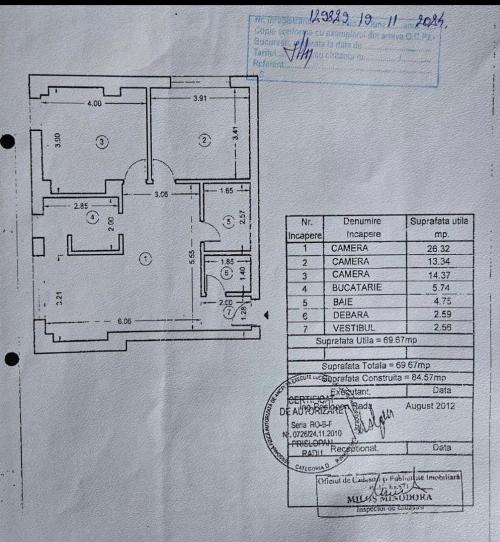 129829 19 11 2024
Copie conforma cu exemplarul din arhiva O.C.P.I.
4.00
3.91
3.00
3
2
3.41
3.05
2.85
4
2.00
1.65
5
2.57
1
5.55
1.85
6
1.40
3.21
2.00
7
1.28
6.05
Nr. Incapere Denumire Incapere Suprafata utila mp.
1 CAMERA 26.32
2 CAMERA 13.34
3 CAMERA 14.37
4 BUCATARIE 5.74
5 BAIE 4.75
6 DEBARA 2.59
7 VESTIBUL 2.56
Suprafata Utila = 69.67mp
Suprafata Totala = 69.67mp
Suprafata Construita = 84.57mp
Executant. Data
Prislopan Radu August 2012
CERTIFICAT
DE AUTORIZARE
Seria RO-B-F
Nr. 0726/24.11.2010
PRISLOPAN
RADU
CATEGORIA D
Receptionat. Data
Oficiul de Cadastru si Publicitate Imobiliara
MILOS MINODORA
Inspector de cadastru